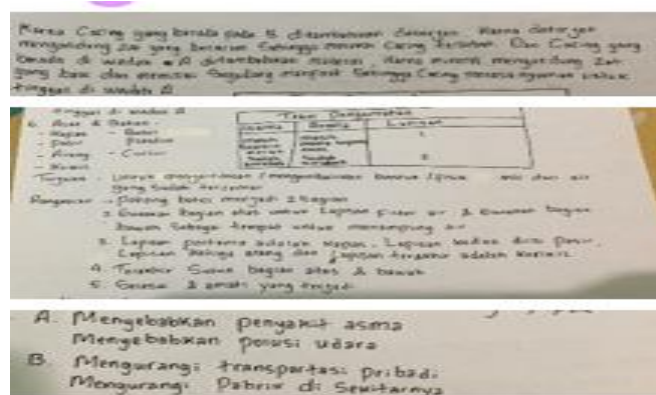 Karna Cacing yang berada pada B ditambahkan detergen. Karna detergen
mengandung zat yang beracun sehingga meracuni Cacing tersebut. Dan Cacing yang
berada di wadah A ditambahkan mineral, karna mineral mengandung zat
yang baik dan memiliki segudang manfaat sehingga Cacing merasa nyaman untuk
tinggal di wadah A
tinggal di wadah A
6. Alat & Bahan :
- Kapas - Botol
- Pasir
- Arang - Cutter
- Kerikil
Tabel Pengamatan
Warna Aroma Lapisan
1
2
Tujuan : Untuk menjernihkan / dari air
yang sudah tercemar
- Potong botol menjadi 2 bagian
2. Gunakan bagian atas untuk lapisan filter air & Gunakan bagian
bawah sebagai tempat untuk menampung air
3. Lapisan pertama adalah kapas, Lapisan kedua diisi pasir,
Lapisan ketiga arang dan lapisan terakhir adalah kerikil
4. Terakhir Susun bagian atas & bawah
5. Selesai & amati yang terjadi
A. Mengebabkan penyakit asma
Mengebabkan polusi udara
B. Mengurangi transportasi pribadi
Mengurangi Pabrik di Sekitarnya